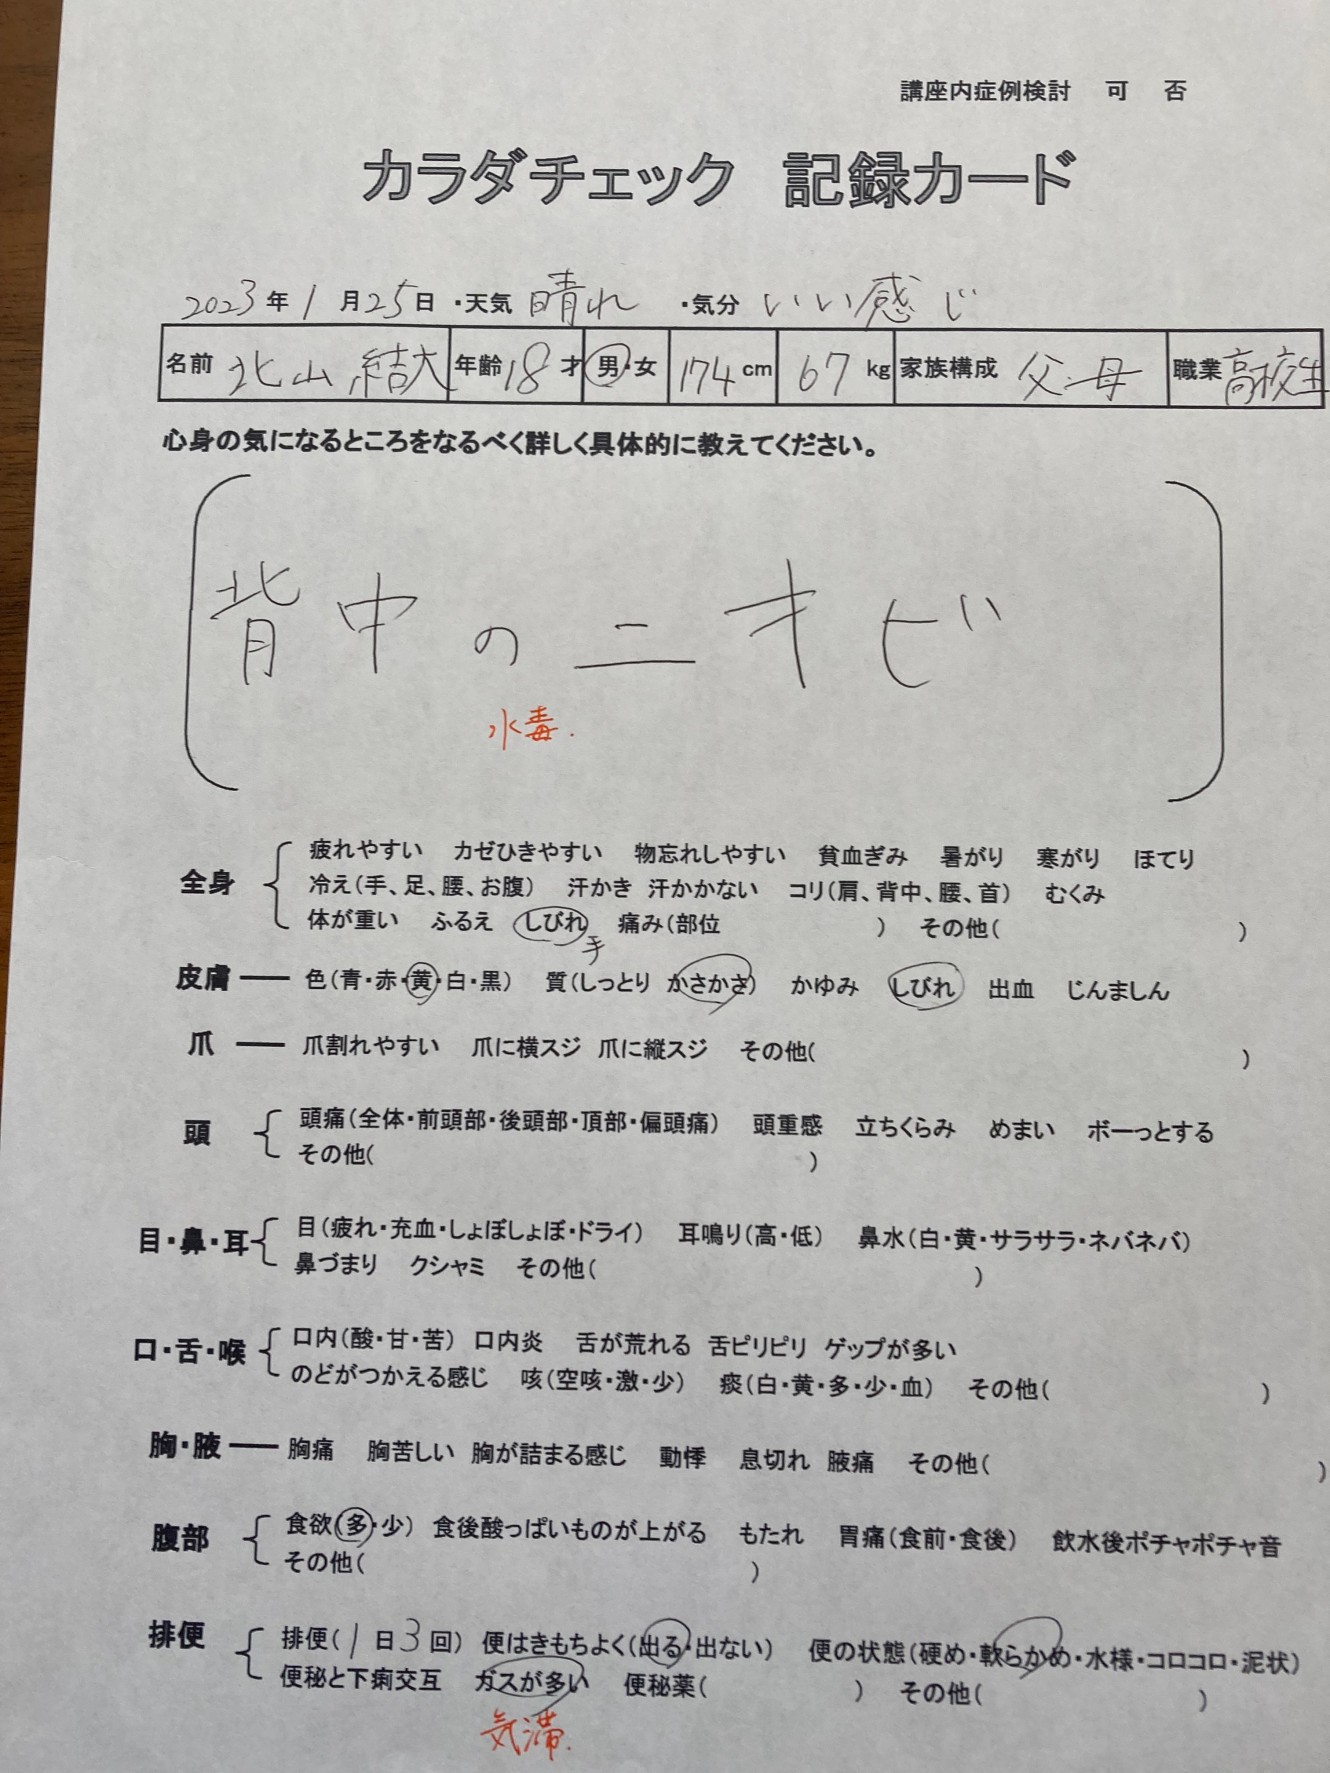 講座内症例検討 可 否
カラダチェック 記録カード
2023年 1月25日 ・天気 晴れ ・気分 いい感じ
名前 北山 結大 年齢 18才 男・女 174cm 67kg 家族構成 父・母 職業 高校生
心身の気になるところをなるべく詳しく具体的に教えてください。
背中のニキビ
水毒.
全身 疲れやすい カゼひきやすい 物忘れしやすい 貧血ぎみ 暑がり 寒がり ほてり
冷え(手、足、腰、お腹) 汗かき 汗かかない コリ(肩、背中、腰、首) むくみ
体が重い ふるえ しびれ 痛み(部位 ) その他( )
手
皮膚 色(青・赤・黄・白・黒) 質(しっとり かさかさ) かゆみ しびれ 出血 じんましん
爪 爪割れやすい 爪に横スジ 爪に縦スジ その他( )
頭 頭痛(全体・前頭部・後頭部・頂部・偏頭痛) 頭重感 立ちくらみ めまい ボーっとする
その他( )
目・鼻・耳 目(疲れ・充血・しょぼしょぼ・ドライ) 耳鳴り(高・低) 鼻水(白・黄・サラサラ・ネバネバ)
鼻づまり クシャミ その他( )
口・舌・喉 口内(酸・甘・苦) 口内炎 舌が荒れる 舌ピリピリ ゲップが多い
のどがつかえる感じ 咳(空咳・激・少) 痰(白・黄・多・少・血) その他( )
胸・腋 胸痛 胸苦しい 胸が詰まる感じ 動悸 息切れ 腋痛 その他( )
腹部 食欲(多・少) 食後酸っぱいものが上がる もたれ 胃痛(食前・食後) 飲水後ポチャポチャ音
その他( )
排便 排便(1日3回) 便はきもちよく(出る・出ない) 便の状態(硬め・軟らかめ・水様・コロコロ・泥状)
便秘と下痢交互 ガスが多い 便秘薬( ) その他( )
気滞.